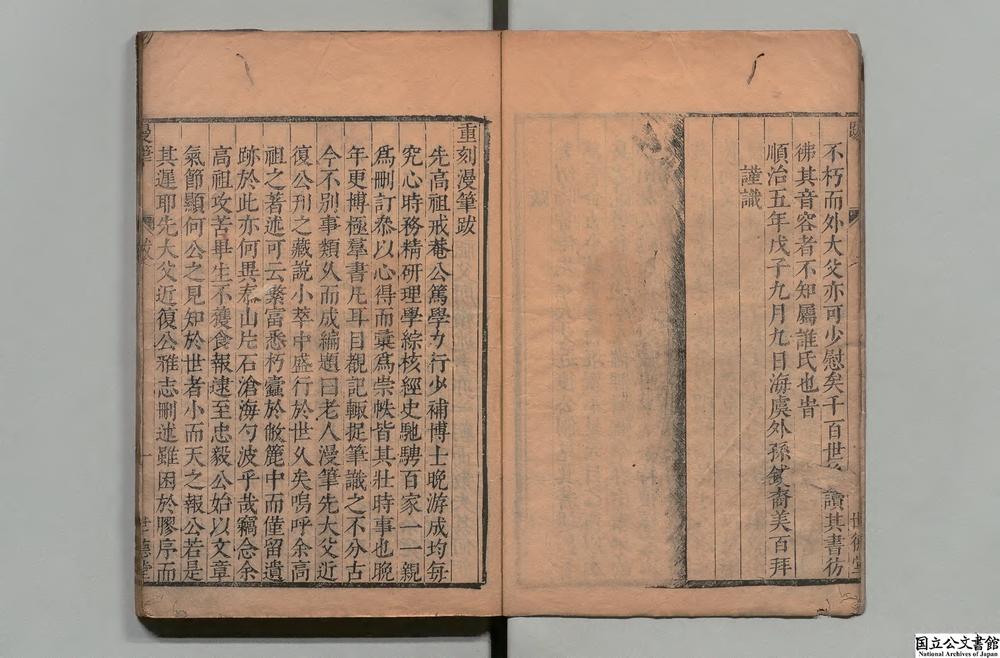 不朽而外大父亦可少慰矣千百世
讀其書彷
彿其音容者不知屬誰氏也旹
順治五年戊子九月九日海虞外孫錢裔美百拜
謹識
重刻漫筆跋
先高祖戒菴公篤學力行少補博士晚游成均每
究心時務精研理學綜核經史馳騁百家一一親
爲刪訂叅以心得而彙爲崇帙皆其壯時事也晚
年更博極羣書凡耳目覩記輙捉筆識之不分古
今不別事類久而成編題曰老人漫筆先大父近
復公刋之藏說小萃中盛行於世久矣嗚呼余高
祖之著述可云繁富悉朽蠹於敝簏中而僅留遺
跡於此亦何異泰山片石滄海勺波乎哉竊念余
高祖攻苦畢生不獲食報逮至忠毅公始以文章
氣節顯何公之見知於世者小而天之報公若是
其遲耶先大父近復公雅志刪述雖困於膠序而
漫筆
跋
一
世德堂
国立公文書館
National Archives of Japan